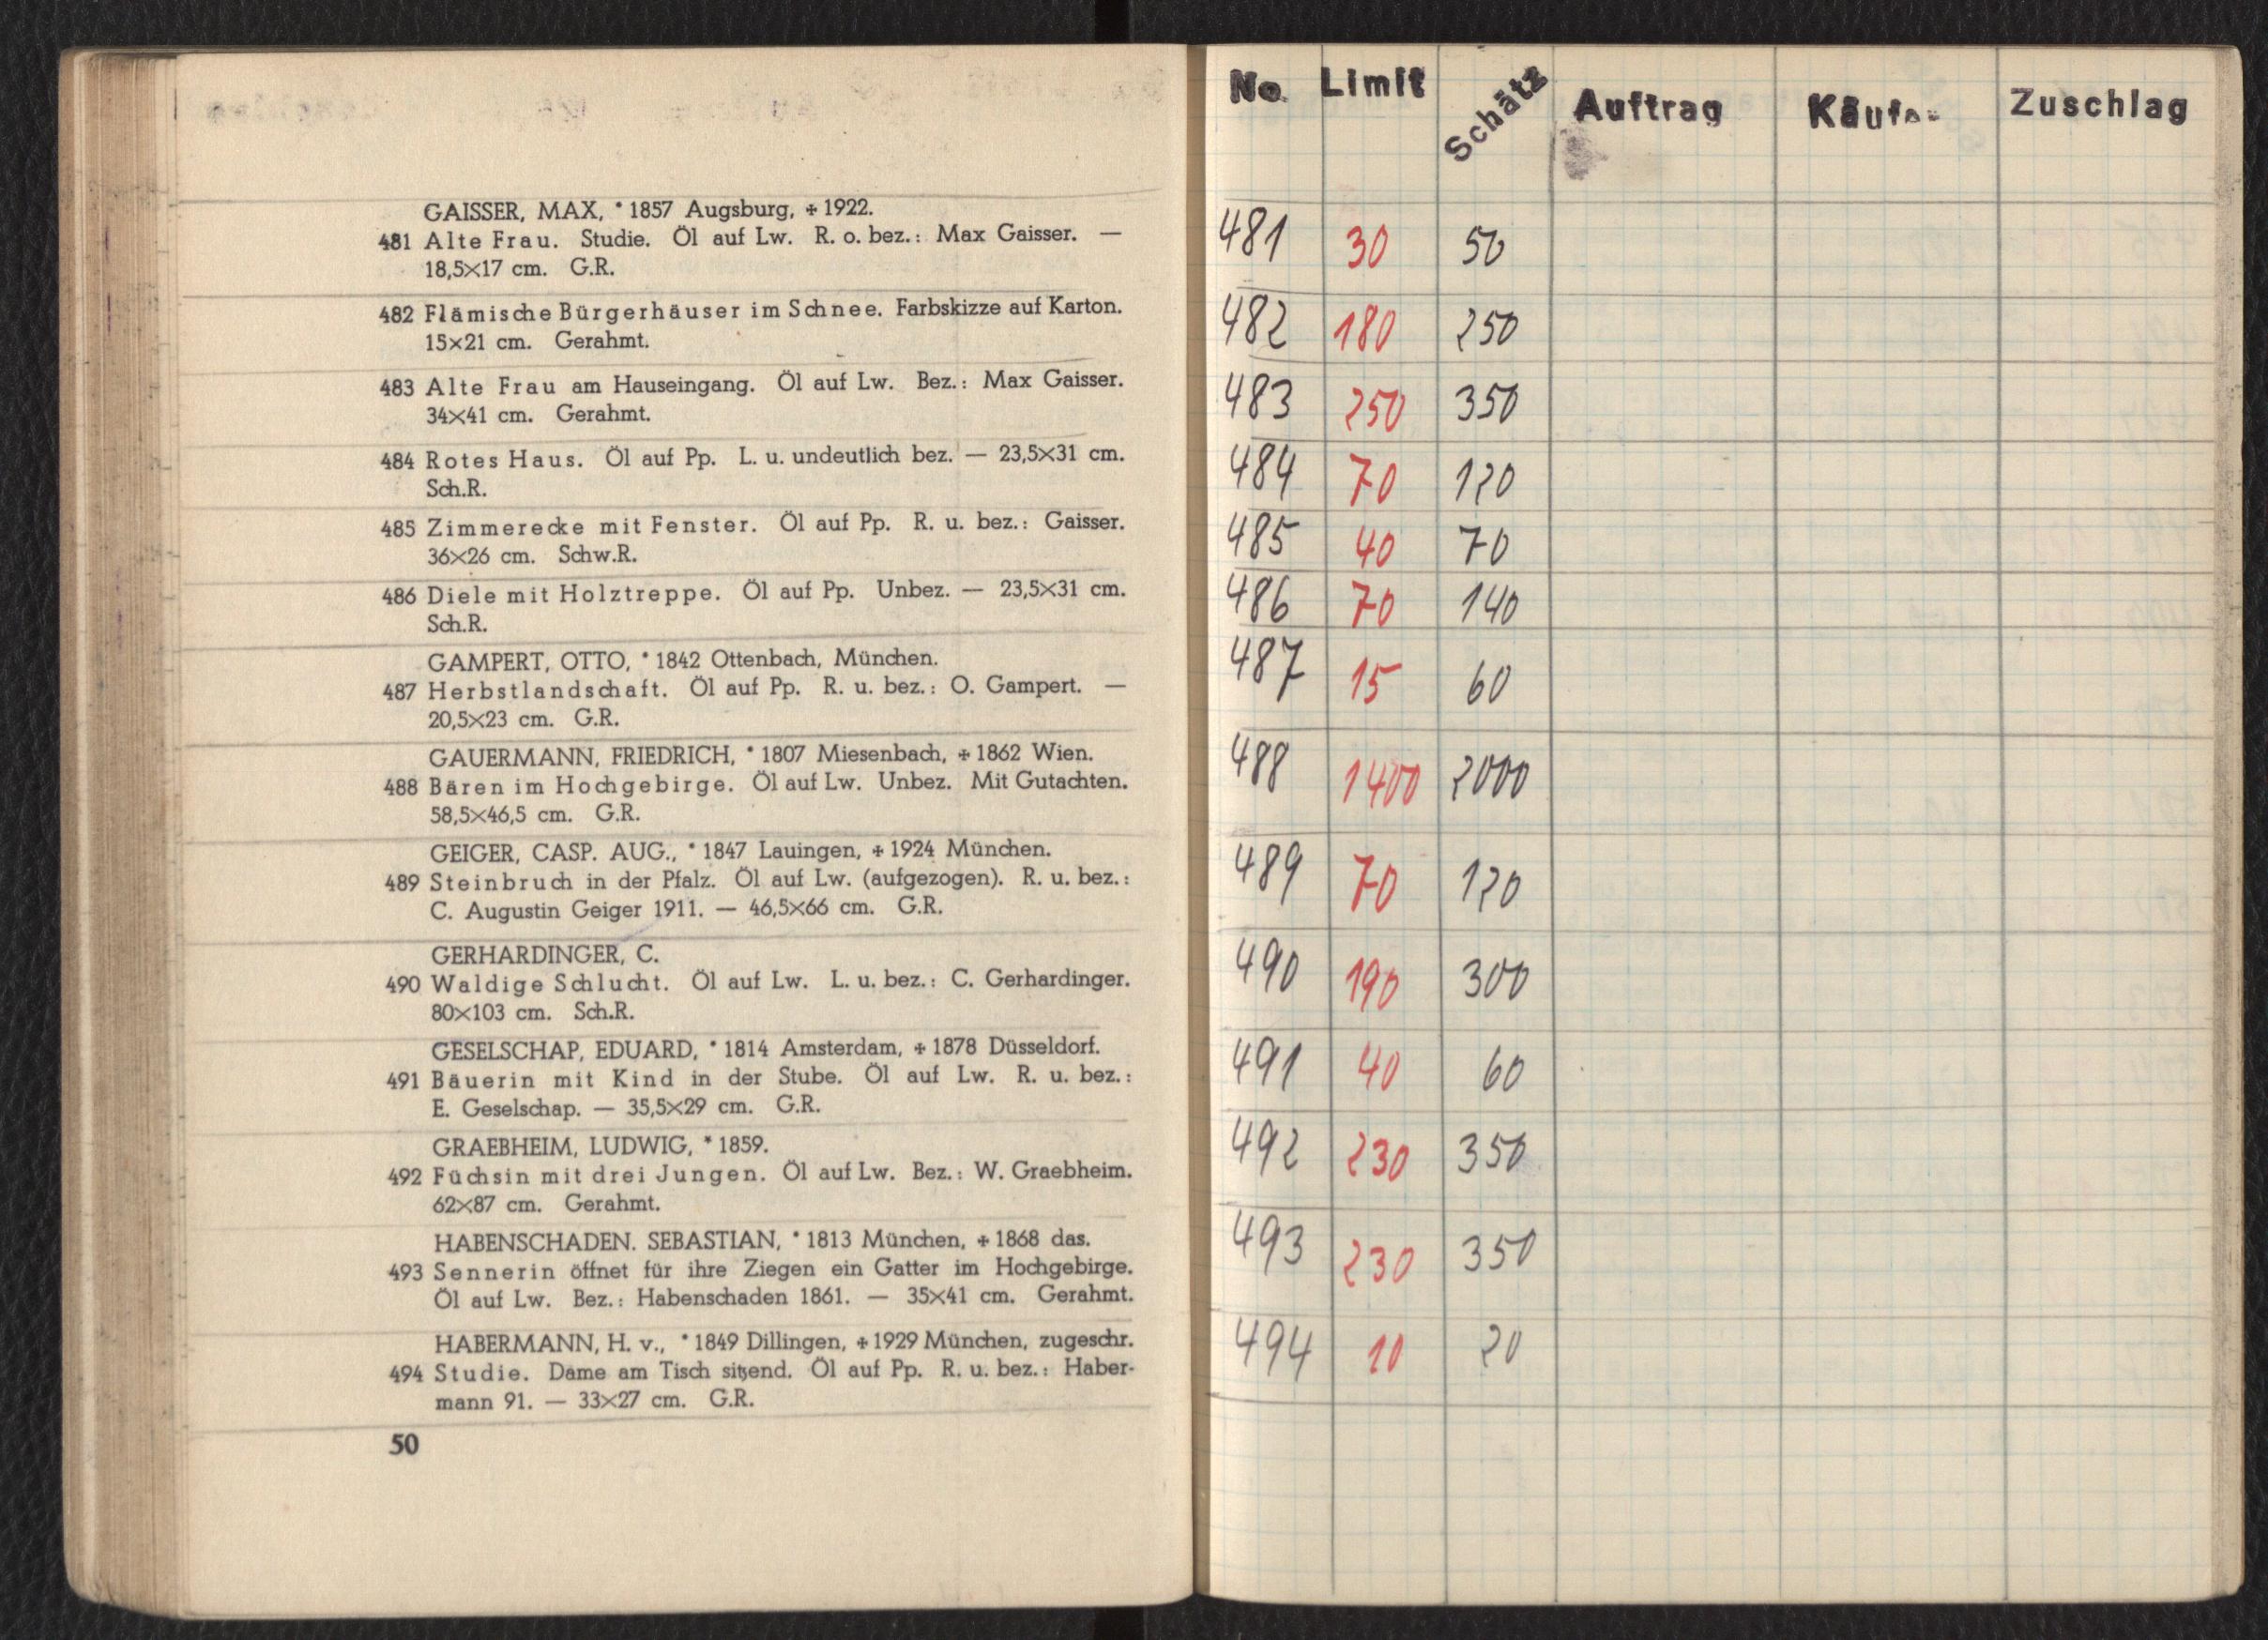 GAISSER, MAX, * 1857 Augsburg, + 1922.
481 Alte Frau. Studie. Öl auf Lw. R. o. bez.: Max Gaisser. —
18,5×17 cm. G.R.
482 Flämische Bürgerhäuser im Schnee. Farbskizze auf Karton.
15×21 cm. Gerahmt.
483 Alte Frau am Hauseingang. Öl auf Lw. Bez.: Max Gaisser.
34×41 cm. Gerahmt.
484 Rotes Haus. Öl auf Pp. L. u. undeutlich bez. — 23,5×31 cm.
Sch.R.
485 Zimmerecke mit Fenster. Öl auf Pp. R. u. bez.: Gaisser.
36×26 cm. Schw.R.
486 Diele mit Holztreppe. Öl auf Pp. Unbez. — 23,5×31 cm.
Sch.R.
GAMPERT, OTTO, * 1842 Ottenbach, München.
487 Herbstlandschaft. Öl auf Pp. R. u. bez.: O. Gampert. —
20,5×23 cm. G.R.
GAUERMANN, FRIEDRICH, * 1807 Miesenbach, + 1862 Wien.
488 Bären im Hochgebirge. Öl auf Lw. Unbez. Mit Gutachten.
58,5×46,5 cm. G.R.
GEIGER, CASP. AUG., * 1847 Lauingen, + 1924 München.
489 Steinbruch in der Pfalz. Öl auf Lw. (aufgezogen). R. u. bez.:
C. Augustin Geiger 1911. — 46,5×66 cm. G.R.
GERHARDINGER, C.
490 Waldige Schlucht. Öl auf Lw. L. u. bez.: C. Gerhardinger.
80×103 cm. Sch.R.
GESELSCHAP, EDUARD, * 1814 Amsterdam, + 1878 Düsseldorf.
491 Bäuerin mit Kind in der Stube. Öl auf Lw. R. u. bez.:
E. Geselschap. — 35,5×29 cm. G.R.
GRAEBHEIM, LUDWIG, * 1859.
492 Füchsin mit drei Jungen. Öl auf Lw. Bez.: W. Graebheim.
62×87 cm. Gerahmt.
HABENSCHADEN. SEBASTIAN, * 1813 München, + 1868 das.
493 Sennerin öffnet für ihre Ziegen ein Gatter im Hochgebirge.
Öl auf Lw. Bez.: Habenschaden 1861. — 35×41 cm. Gerahmt.
HABERMANN, H. v., * 1849 Dillingen, + 1929 München, zugeschr.
494 Studie. Dame am Tisch sitzend. Öl auf Pp. R. u. bez.: Haber-
mann 91. — 33×27 cm. G.R.
50
No. Limit Schätz Auftrag Käufer Zuschlag
481 30 50
482 180 250
483 250 350
484 70 120
485 40 70
486 70 140
487 15 60
488 1400 2000
489 70 120
490 190 300
491 40 60
492 230 350
493 230 350
494 10 20